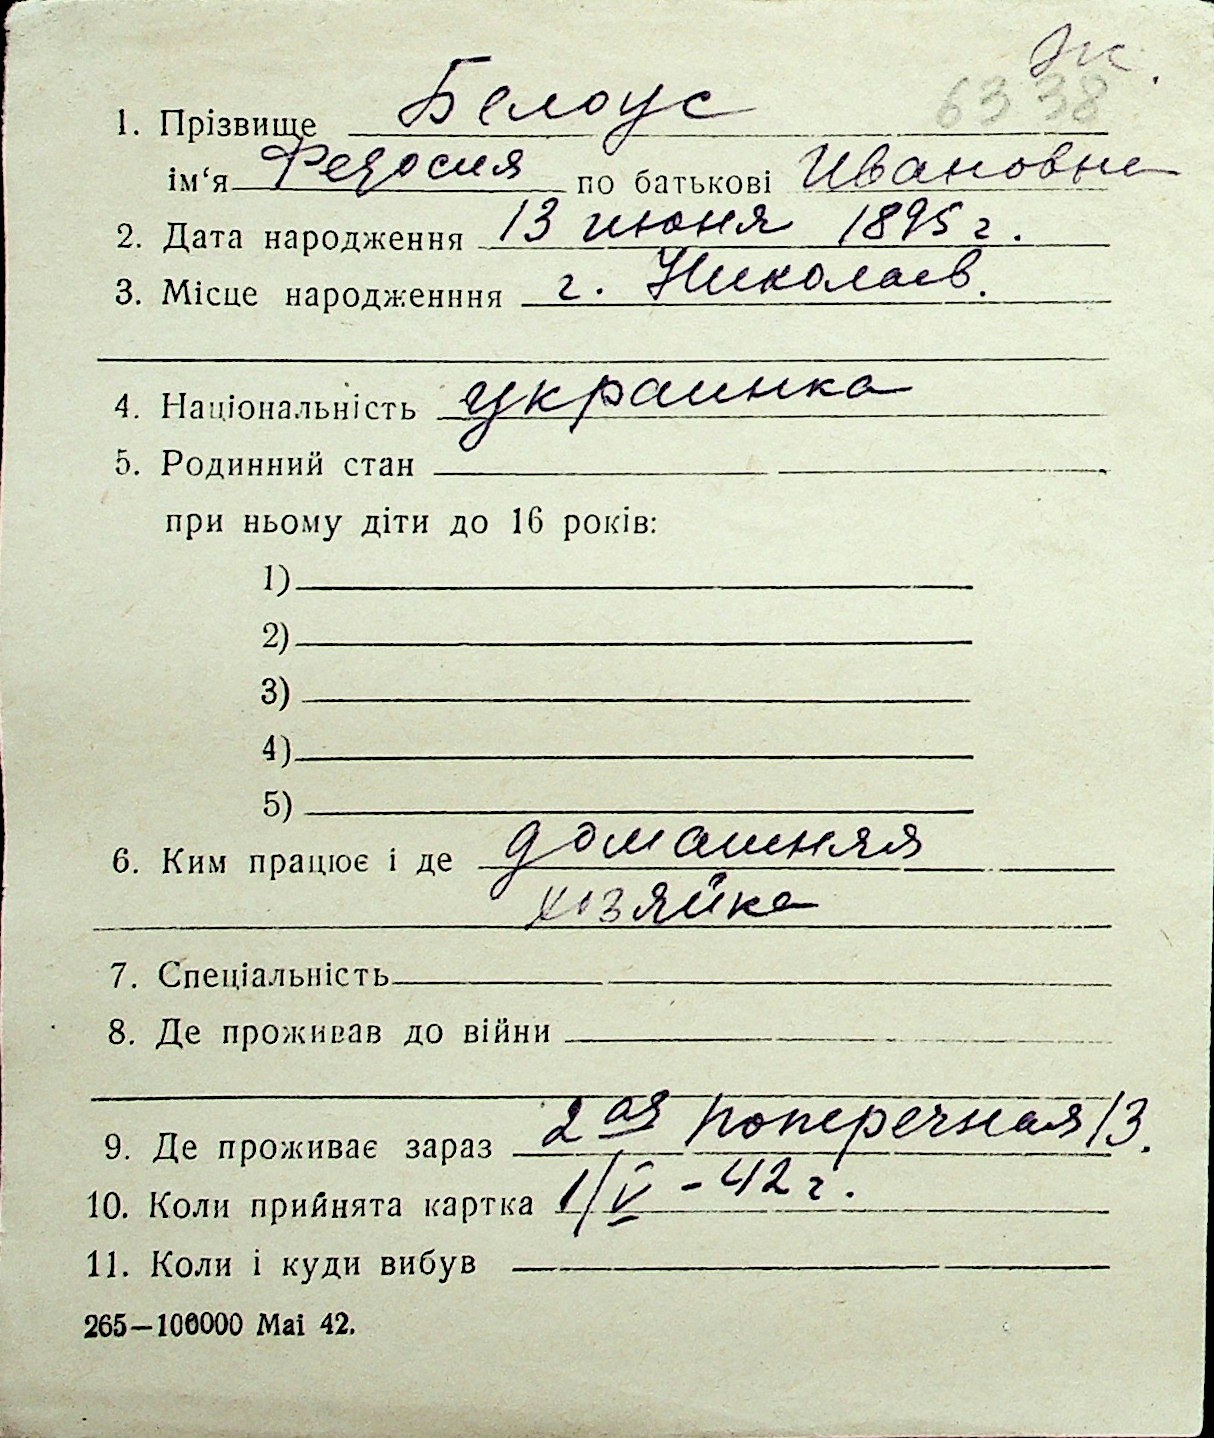 Ж.
6338
1. Прізвище Белоус
ім‘я Федосия по батькові Ивановна
2. Дата народження 13 июня 1895 г.
3. Місце народженння г. Николаев.
4. Національність украинка
5. Родинний стан
при ньому діти до 16 років:
1)
2)
3)
4)
5)
6. Ким працює і де домашняя
хозяйка
7. Спеціальність
8. Де проживав до війни
9. Де проживає зараз 2ая поперечная 13.
10. Коли прийнята картка 1/V - 42 г.
11. Коли і куди вибув
265—100000 Mai 42.